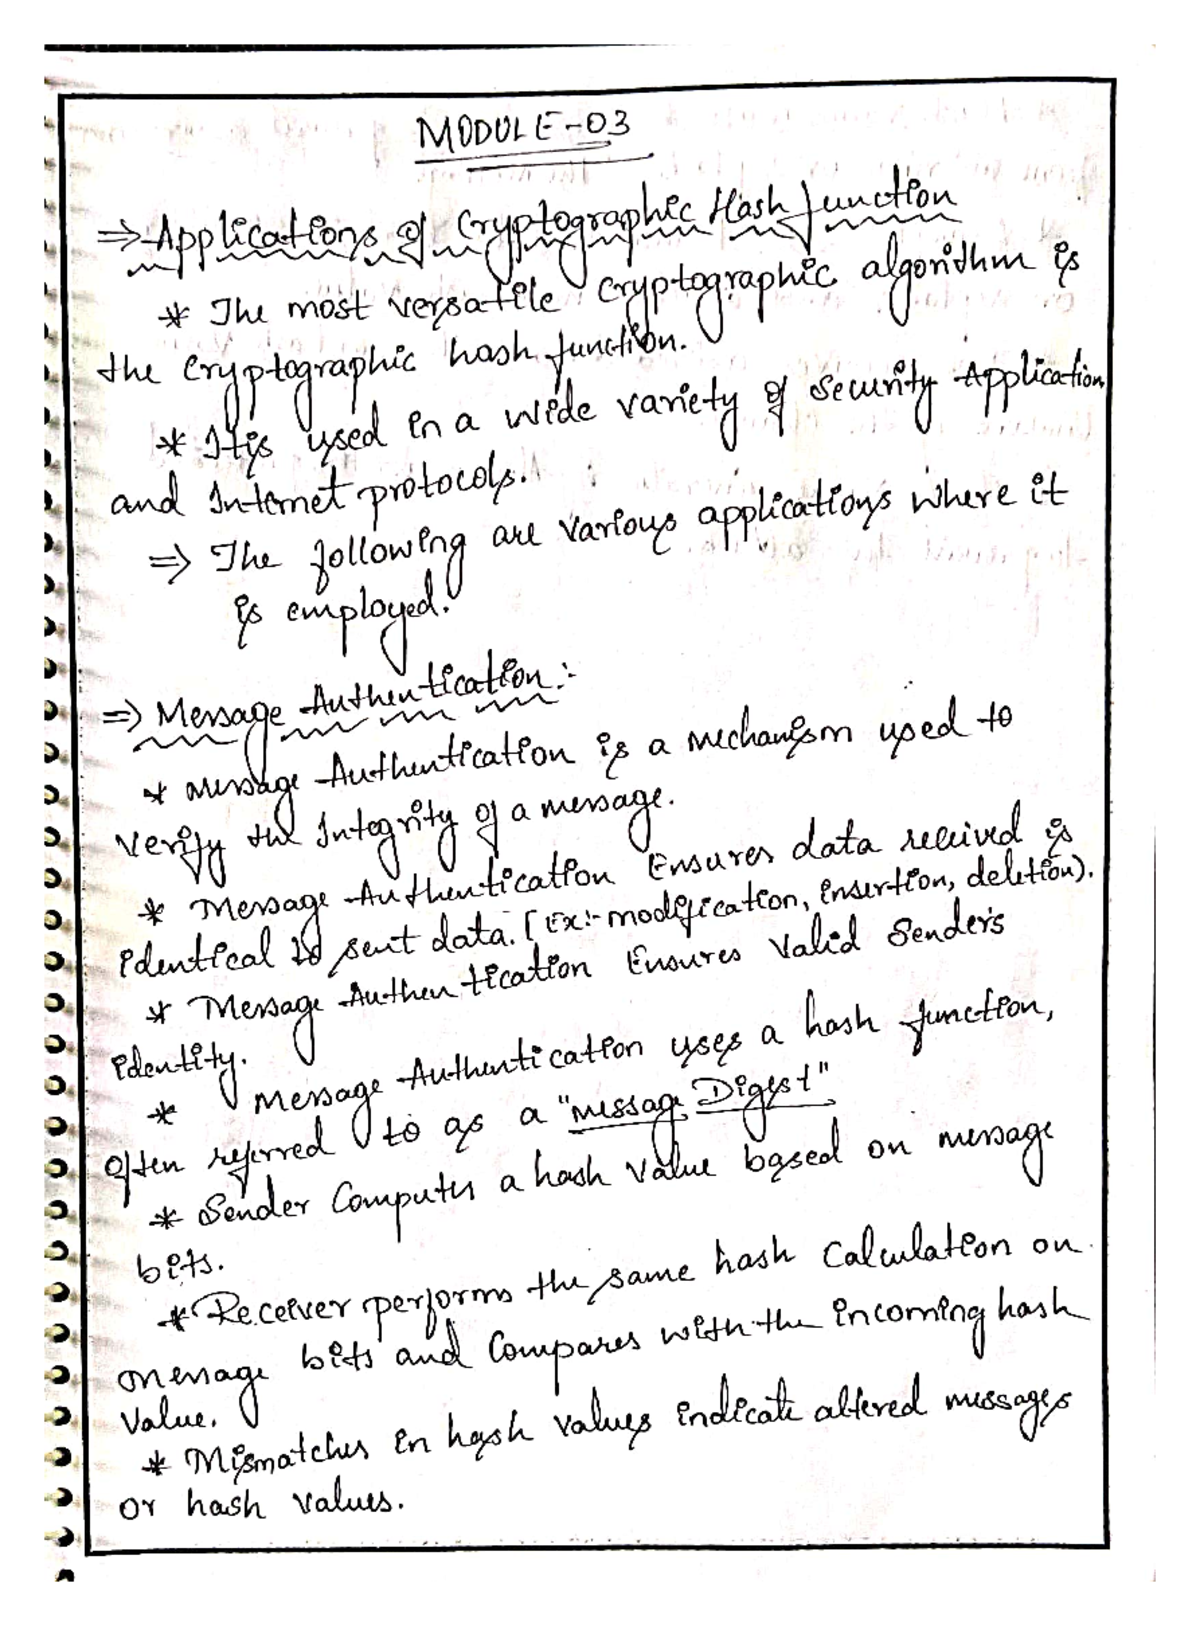 MODULE-03
⇒ Applications of Cryptographic Hash function
* The most versatile cryptographic algorithm is
the cryptographic hash function.
* It is used in a wide variety of Security Application
and Internet protocols.
⇒ The following are various applications where it
is employed.
⇒ Message Authentication :-
* Message Authentication is a mechanism used to
Verify the Integrity of a message.
* Message Authentication Ensures data received is
identical to sent data. [Ex:- modification, insertion, deletion).
* Message Authentication Ensures Valid Sender's
identity.
* Message Authentication uses a hash function,
often referred to as a "message Digest"
* Sender Computes a hash value based on message
bits.
* Receiver performs the same hash Calculation on
message bits and Compares with the incoming hash
Value.
* Mismatches in hash values indicate altered messages
or hash values.